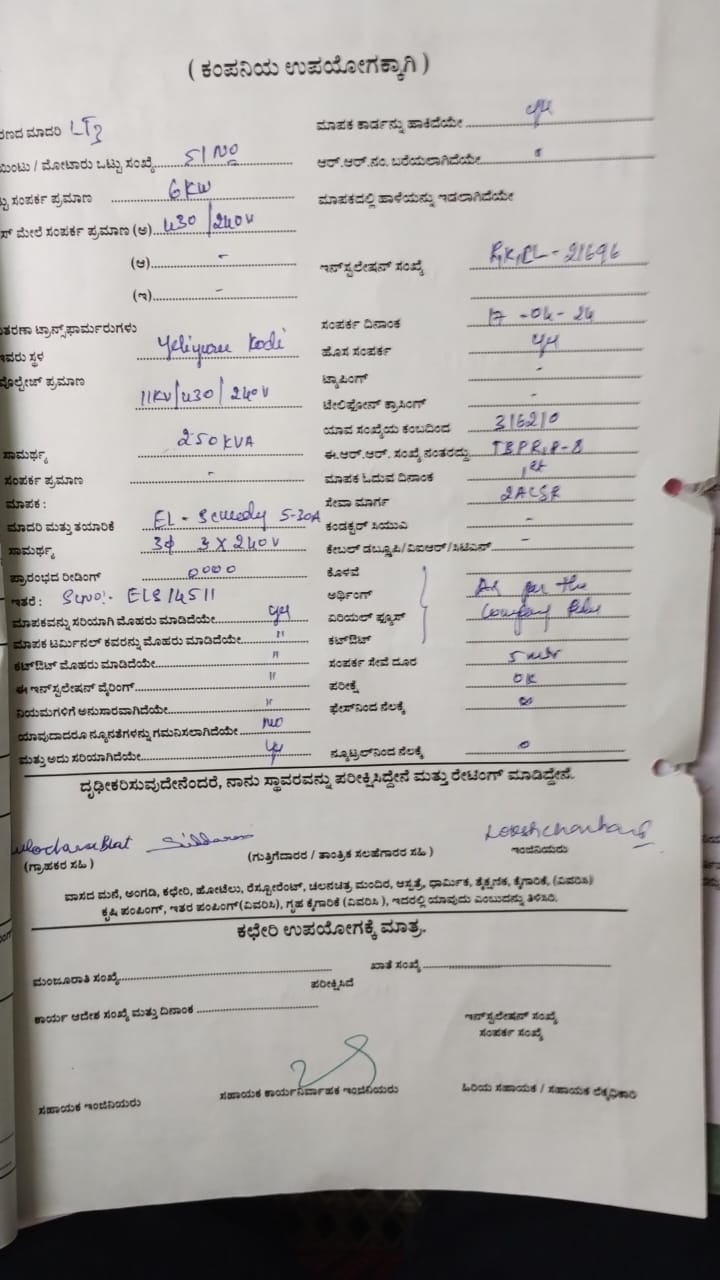 ( ಕಂಪನಿಯ ಉಪಯೋಗಕ್ಕಾಗಿ )
ರಣದ ಮಾದರಿ LT3 ಮಾಪಕ ಕಾರ್ಡನ್ನು ಹಾಕಿದೆಯೇ
ಯಿಂಟು / ಮೋಟಾರು ಒಟ್ಟು ಸಂಖ್ಯೆ 51 No ಆರ್.ಆರ್.ನಂ. ಬರೆಯಲಾಗಿದೆಯೇ
ಟ್ಟು ಸಂಪರ್ಕ ಪ್ರಮಾಣ 6KW ಮಾಪಕದಲ್ಲಿ ಹಾಳೆಯನ್ನು ಇಡಲಾಗಿದೆಯೇ
ಸ್ ಮೇಲೆ ಸಂಪರ್ಕ ಪ್ರಮಾಣ (ಅ) 430/240V
(ಆ) - ಇನ್‌ಸ್ಟಲೇಷನ್ ಸಂಖ್ಯೆ -21696
(ಇ) -
ತರಣಾ ಟ್ರಾನ್ಸ್‌ಫಾರ್ಮರುಗಳು ಸಂಪರ್ಕ ದಿನಾಂಕ 17-04-24
ಇವರು ಸ್ಥಳ Kodi ಹೊಸ ಸಂಪರ್ಕ
ವೊಲ್ಟೇಜ್ ಪ್ರಮಾಣ 11KV/430/240V ಟ್ಯಾಪಿಂಗ್ -
ಟೇಲಿಫೋನ್ ಕ್ರಾಸಿಂಗ್ -
ಸಾಮರ್ಥ್ಯ 250KVA ಯಾವ ಸಂಖ್ಯೆಯ ಕಂಬದಿಂದ 3/62/0
ಈ.ಆರ್.ಆರ್. ಸಂಖ್ಯೆ ನಂತರದ್ದು
ಸಂಪರ್ಕ ಪ್ರಮಾಣ - ಮಾಪಕ ಓದುವ ದಿನಾಂಕ 1st
ಮಾಪಕ : ಸೇವಾ ಮಾರ್ಗ 2ACSR
ಮಾದರಿ ಮತ್ತು ತಯಾರಿಕೆ EL - 5-30A ಕಂಡಕ್ಟರ್ ಸಿಯುವಿ -
ಸಾಮರ್ಥ್ಯ 3Φ 3 X 240V ಕೇಬಲ್ ಡಬ್ಲ್ಯೂಪಿ/ವಿಐಆರ್/ಸಿಟಿಎಸ್ -
ಪ್ರಾರಂಭದ ರೀಡಿಂಗ್ 0000 ಕೊಳವೆ
ಇತರೆ : ELS14511 ಅರ್ಥಿಂಗ್ As per the
ಮಾಪಕವನ್ನು ಸರಿಯಾಗಿ ಮೊಹರು ಮಾಡಿದೆಯೇ ಏರಿಯಲ್ ಫ್ಯೂಸ್ Company
ಮಾಪಕ ಟರ್ಮಿನಲ್ ಕವರನ್ನು ಮೊಹರು ಮಾಡಿದೆಯೇ " ಕಟ್‌ಔಟ್
ಕಟ್‌ಔಟ್ ಮೊಹರು ಮಾಡಿದೆಯೇ " ಸಂಪರ್ಕ ಸೇವೆ ದೂರ 5 mtr
ಈ ಇನ್‌ಸ್ಟಲೇಷನ್ ವೈರಿಂಗ್ " ಪರೀಕ್ಷೆ OK
ನಿಯಮಗಳಿಗೆ ಅನುಸಾರವಾಗಿದೆಯೇ " ಫೇಸ್‌ನಿಂದ ನೆಲಕ್ಕೆ ∞
ಯಾವುದಾದರೂ ನ್ಯೂನತೆಗಳನ್ನು ಗಮನಿಸಲಾಗಿದೆಯೇ No
ಮತ್ತು ಅದು ಸರಿಯಾಗಿದೆಯೇ ನ್ಯೂಟ್ರಲ್‌ನಿಂದ ನೆಲಕ್ಕೆ 0
ದೃಢೀಕರಿಸುವುದೇನೆಂದರೆ, ನಾನು ಸ್ಥಾವರವನ್ನು ಪರೀಕ್ಷಿಸಿದ್ದೇನೆ ಮತ್ತು ರೇಟಿಂಗ್ ಮಾಡಿದ್ದೇನೆ.
(ಗ್ರಾಹಕರ ಸಹಿ) (ಗುತ್ತಿಗೆದಾರರ / ತಾಂತ್ರಿಕ ಸಲಹೆಗಾರರ ಸಹಿ ) ಇಂಜಿನಿಯರು
ವಾಸದ ಮನೆ, ಅಂಗಡಿ, ಕಛೇರಿ, ಹೋಟೆಲು, ರೆಸ್ಟೋರೆಂಟ್, ಚಲನಚಿತ್ರ ಮಂದಿರ, ಆಸ್ಪತ್ರೆ, ಧಾರ್ಮಿಕ, ಶೈಕ್ಷಣಿಕ, ಕೈಗಾರಿಕೆ, (ವಿವರಿಸಿ)
ಕೃಷಿ ಪಂಪಿಂಗ್, ಇತರ ಪಂಪಿಂಗ್(ವಿವರಿಸಿ), ಗೃಹ ಕೈಗಾರಿಕೆ (ವಿವರಿಸಿ ), ಇದರಲ್ಲಿ ಯಾವುದು ಎಂಬುದನ್ನು ತಿಳಿಸಿರಿ.
ಕಛೇರಿ ಉಪಯೋಗಕ್ಕೆ ಮಾತ್ರ.
ಮಂಜೂರಾತಿ ಸಂಖ್ಯೆ ಖಾತೆ ಸಂಖ್ಯೆ
ಪರೀಕ್ಷಿಸಿದೆ
ಕಾರ್ಯ ಆದೇಶ ಸಂಖ್ಯೆ ಮತ್ತು ದಿನಾಂಕ ಇನ್‌ಸ್ಟಲೇಷನ್ ಸಂಖ್ಯೆ
ಸಂಪರ್ಕ ಸಂಖ್ಯೆ
ಸಹಾಯಕ ಇಂಜಿನಿಯರು ಸಹಾಯಕ ಕಾರ್ಯನಿರ್ವಾಹಕ ಇಂಜಿನಿಯರು ಹಿರಿಯ ಸಹಾಯಕ / ಸಹಾಯಕ ಲೆಕ್ಕಾಧಿಕಾರಿ